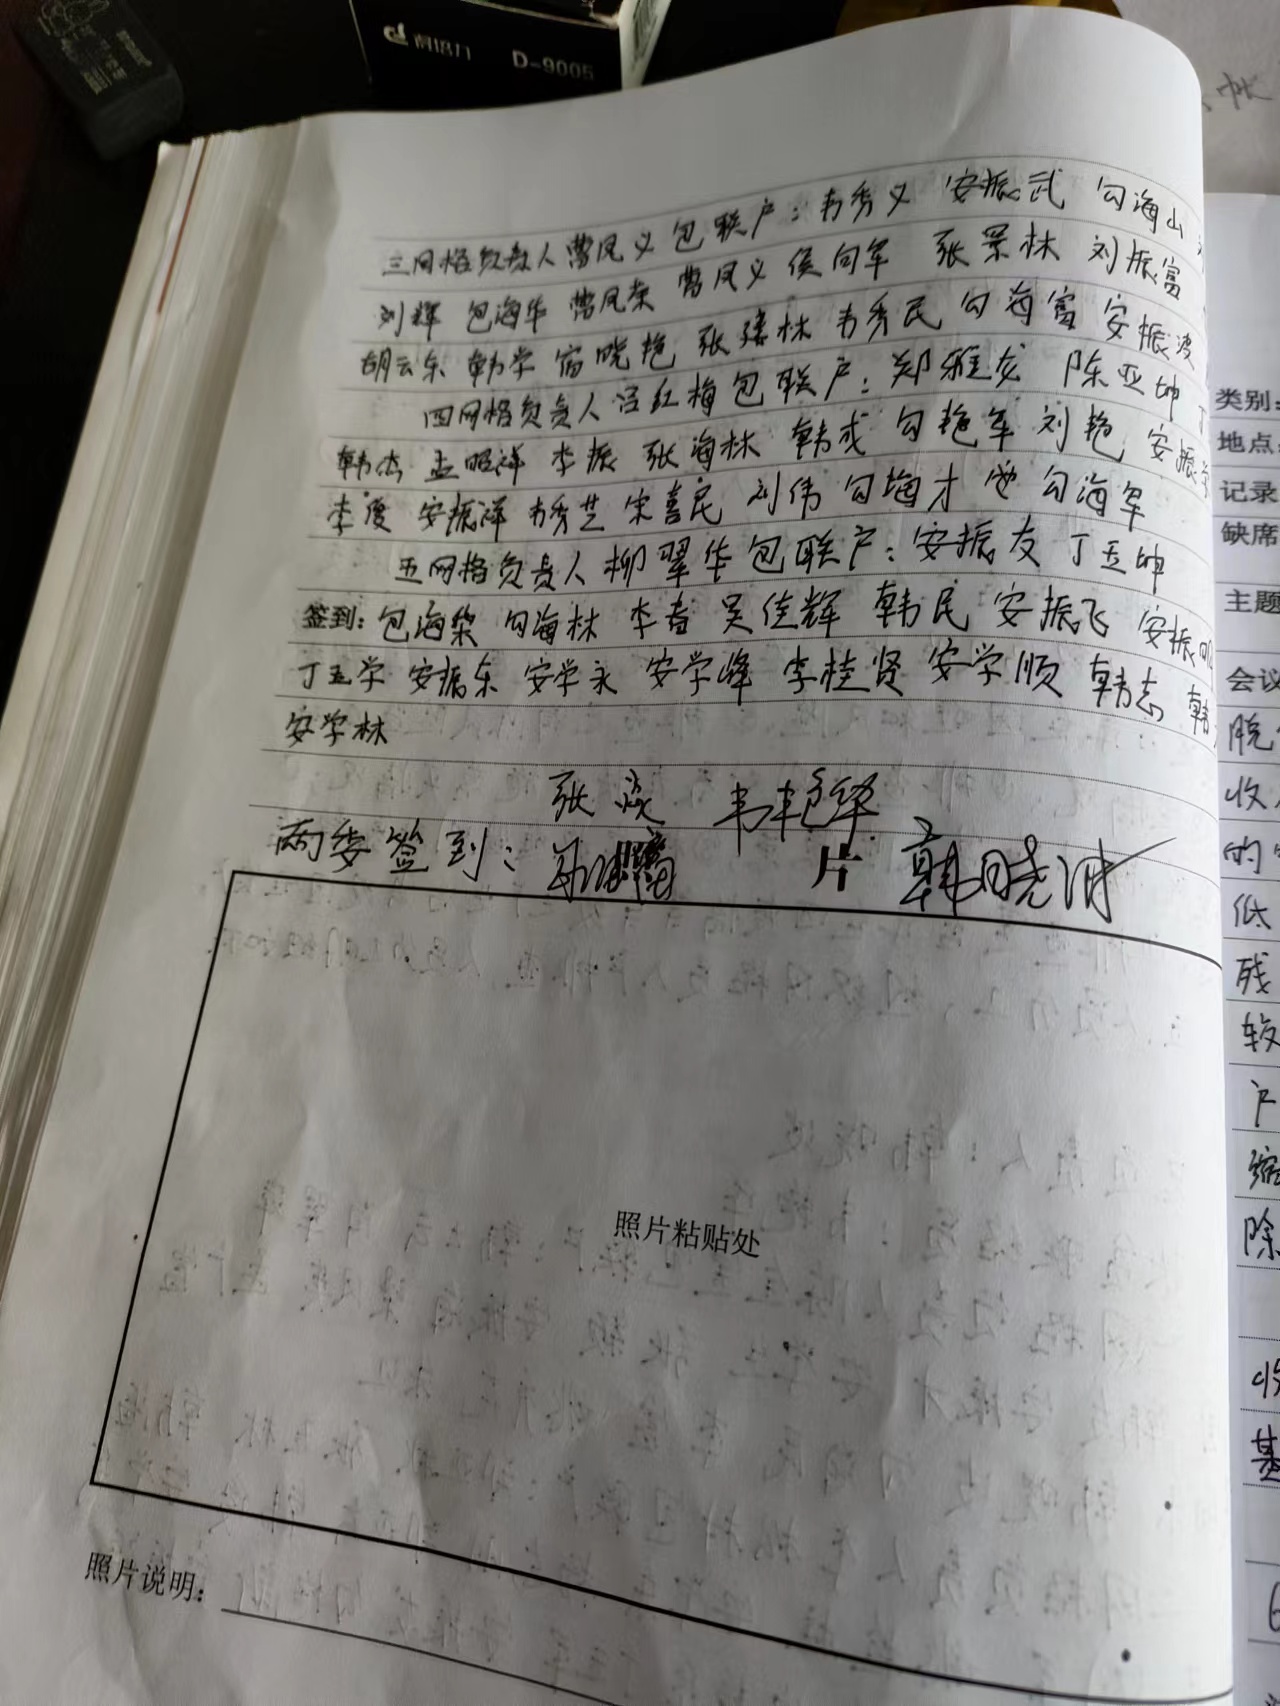 D-9005
三网格负责人曹凤义包联户：韦秀义 安振武 勾海山
刘辉 包海华 曹凤荣 曹凤义 侯向军 张景林 刘振富
胡云东 韩学 宿晓艳 张建林 韦秀民 勾海富 安振波
四网格负责人冯红梅包联户：郑雅龙 陈亚坤
韩杰 孟昭洋 李振 张海林 韩成 勾艳军 刘艳 安振学
李俊 安振洋 韦秀芝 宋喜民 刘伟 勾海才 勾海军
五网格负责人柳翠华包联户：安振友 丁玉坤
签到：包海荣 勾海林 李春 吴佳辉 韩民 安振飞 安振
丁玉学 安振东 安学永 安学峰 李桂贤 安学顺 韩志 韩
安学林
张焱 韦艳华
两委签到： 片 韩晓波
照片粘贴处
照片说明：
类别：
地点：
记录
缺席
主题
会议
脱
收
的
低
残
较
户
缩
除
收
基